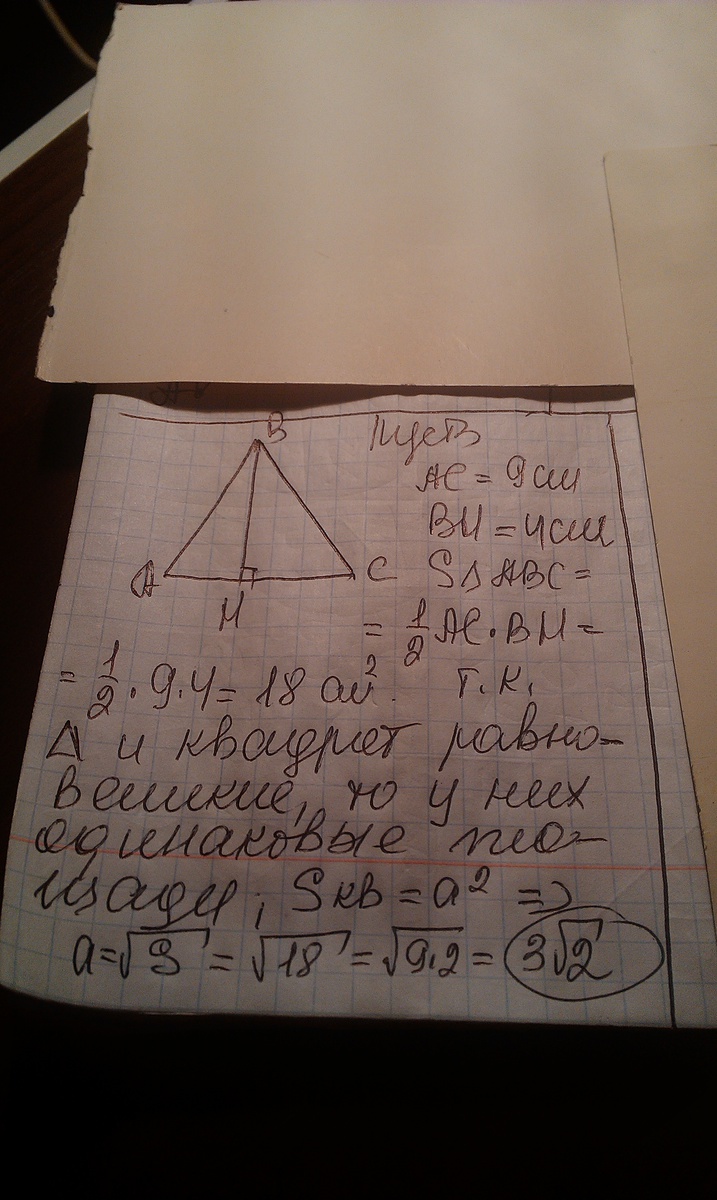 B
A
H
C
Пусть
AC = 9 см
BH = 4 см
S△ABC =
= 1/2 AC · BH =
= 1/2 · 9 · 4 = 18 см². т.к.
△ и квадрат равно-
великие, то у них
одинаковые пло-
щади; Sкв = a² =>
a = √S = √18 = √9·2 = 3√2